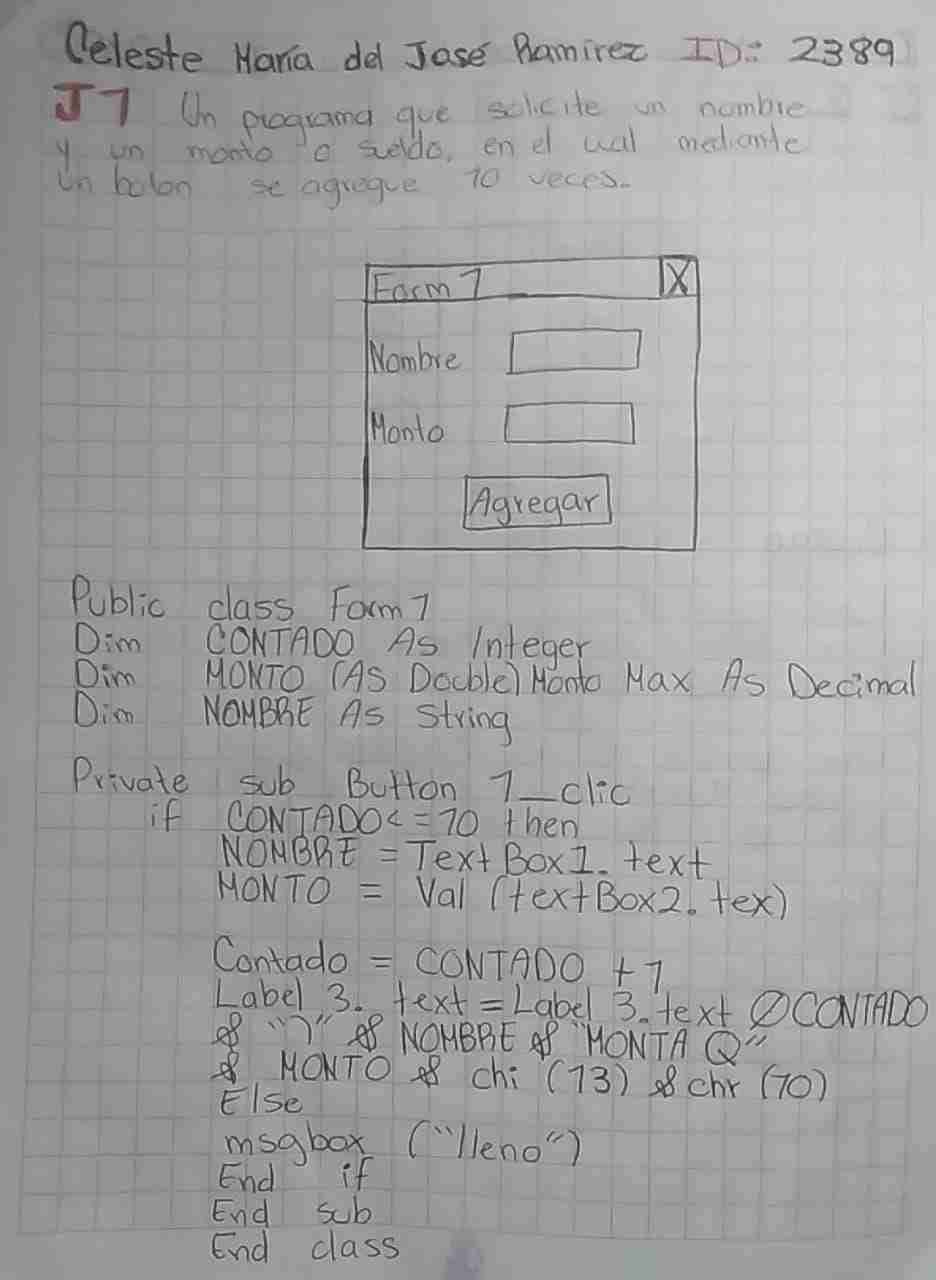 Celeste María del José Ramirez ID: 2389
J1 Un programa que solicite un nombre
y un monto o sueldo, en el cual mediante
un boton se agregue 10 veces.
Form 1 X
Nombre
Monto
Agregar
Public class Form 1
Dim CONTADO As Integer
Dim MONTO (As Double) Monto Max As Decimal
Dim NOMBRE As String
Private sub Button 1_clic
if CONTADO <= 10 then
NOMBRE = Text Box1. text
MONTO = Val (textBox2. tex)
Contado = CONTADO + 1
Label 3. text = Label 3. text & CONTADO
& ")" & NOMBRE & "MONTA Q"
& MONTO & chi (13) & chr (10)
Else
msgbox ("lleno")
End if
End sub
End class